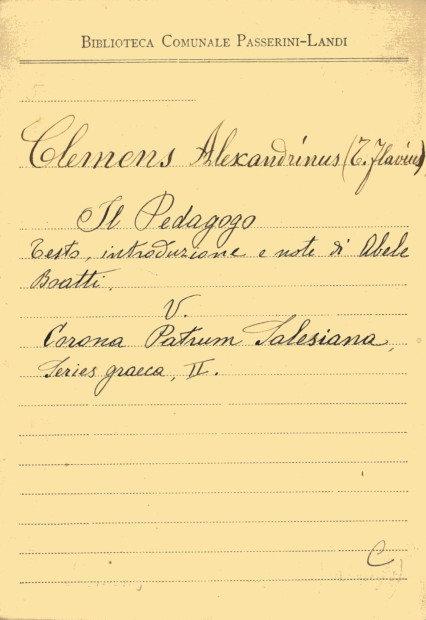 BIBLIOTECA COMUNALE PASSERINI-LANDI
Clemens Alexandrinus (T. Flavius)
Il Pedagogo
Testo, introduzione e note di Abele
Boatti.
V.
Corona Patrum Salesiana,
Series graeca, II.
C